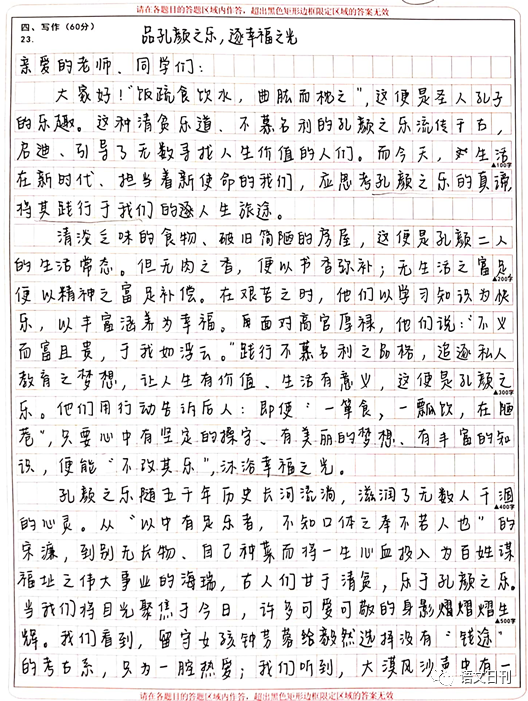 请在各题目的答题区域内作答，超出黑色矩形边框限定区域的答案无效
四、写作（60分）
23.
品孔颜之乐，逐幸福之光
亲爱的老师、同学们：
大家好！"饭疏食饮水，曲肱而枕之"，这便是圣人孔子
的乐趣。这种清贫乐道、不慕名利的孔颜之乐流传千古，
启迪、引导了无数寻找人生价值的人们。而今天，生活
▲100字
在新时代、担当着新使命的我们，应思考孔颜之乐的真谛
将其践行于我们的逐人生旅途。
清淡乏味的食物、破旧简陋的房屋，这便是孔颜二人
的生活常态。但无肉之香，便以书香弥补；无生活之富足
▲200字
便以精神之富足补偿。在艰苦之时，他们以学习知识为快
乐，以丰富涵养为幸福。面对高官厚禄，他们说："不义
而富且贵，于我如浮云。"践行不慕名利之品格，追逐私人
教育之梦想，让人生有价值、生活有意义，这便是孔颜之
▲300字
乐。他们用行动告诉后人：即使"一箪食，一瓢饮，在陋
巷"，只要心中有坚定的操守、有美丽的梦想、有丰富的知
识，便能"不改其乐"，沐浴幸福之光。
孔颜之乐随五千年历史长河流淌，滋润了无数人干涸
▲400字
的心灵。从"以中有足乐者，不知口体之奉不若人也"的
宋濂，到别无长物、自己种菜而将一生心血投入为百姓谋
福祉之伟大事业的海瑞，古人们甘于清贫，乐于孔颜之乐。
当我们将目光聚焦于今日，许多可爱可敬的身影熠熠生
▲500字
辉。我们看到，留守女孩钟芳蓉毅然选择没有"钱途"
的考古系，只为一腔热爱；我们听到，大漠风沙声中有一
请在各题目的答题区域内作答，超出黑色矩形边框限定区域的答案无效
语文日刊